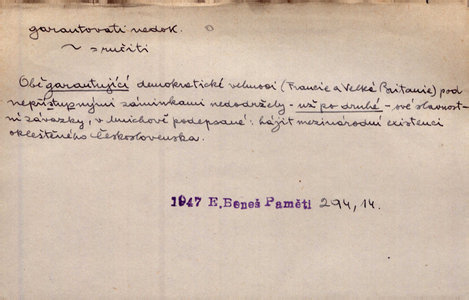 garantovati nedok.
~ = ručiti
Obě garantující demokratické velmoci (Francie a Velká Britanie) pod
nepřístupnými záminkami nedodržely - už po druhé - své slavnost-
ní závazky, v Mnichově podepsané: hájit mezinárodní existenci
okleštěného Československa.
1947 E. Beneš Paměti 294, 14.